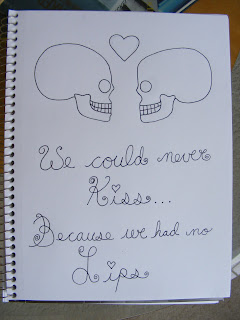 We could never
Kiss...
Because we had no
Lips